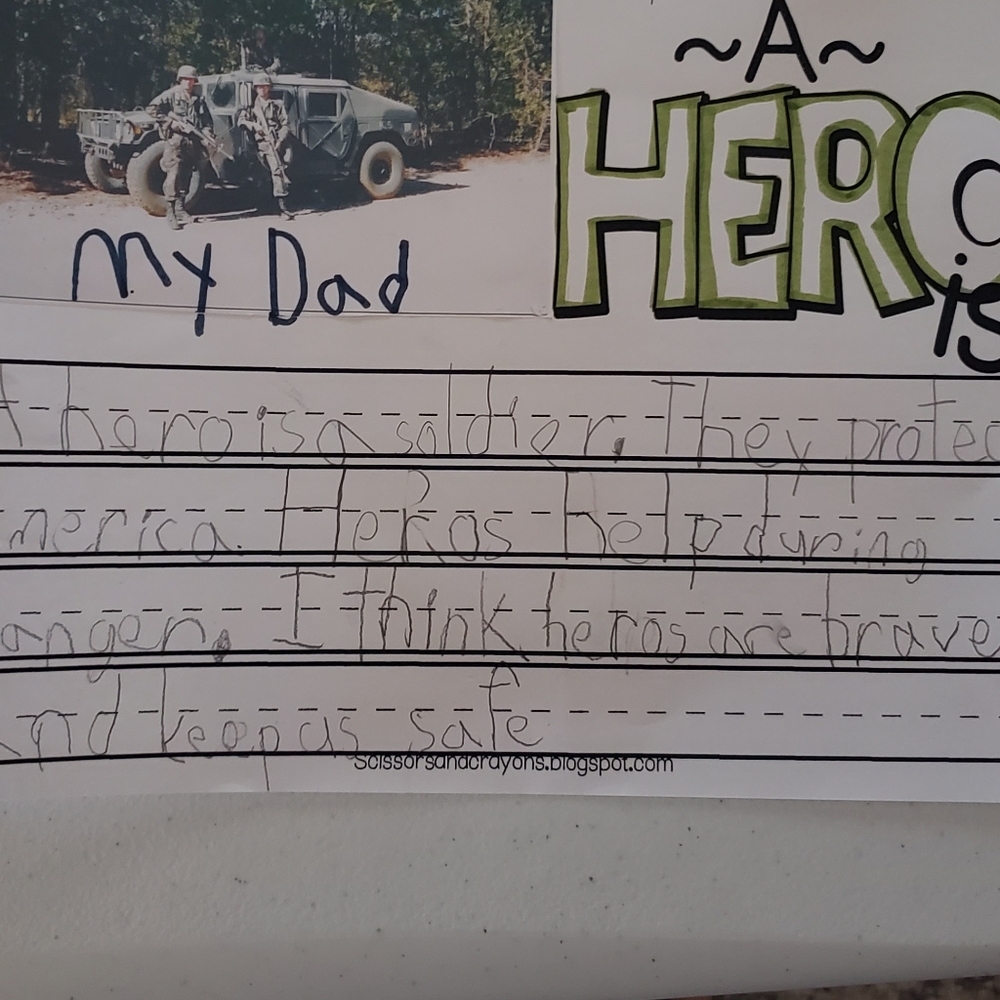 ~A~
HERO
is
My Dad
A hero is a soldier. They protec
merica. Heros help during
anger. I think heros are brave
and keep us safe
scissorsandcrayons.blogspot.com